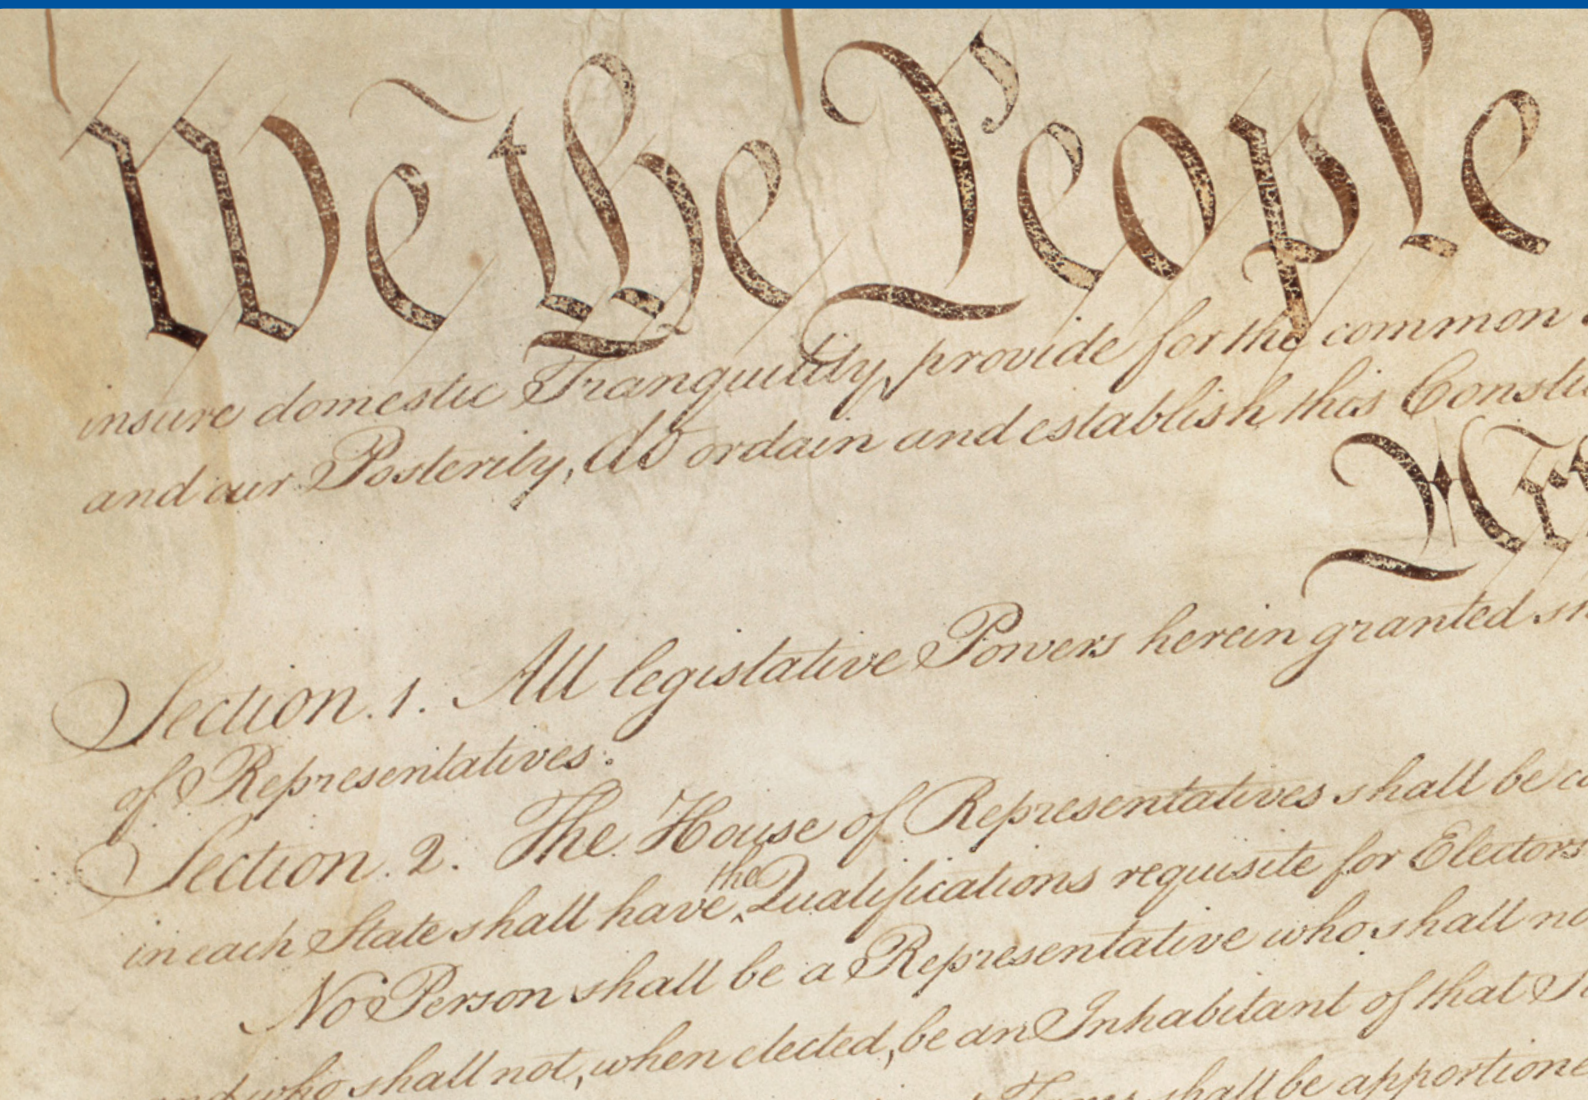 We the People
insure domestic Tranquility, provide for the common
and our Posterity, do ordain and establish this
Section. 1. All legislative Powers herein granted
of Representatives.
Section. 2. The House of Representatives shall be
the
in each State shall have Qualifications requisite for Electors
No Person shall be a Representative who shall
who shall not, when elected, be an Inhabitant of that
shall be